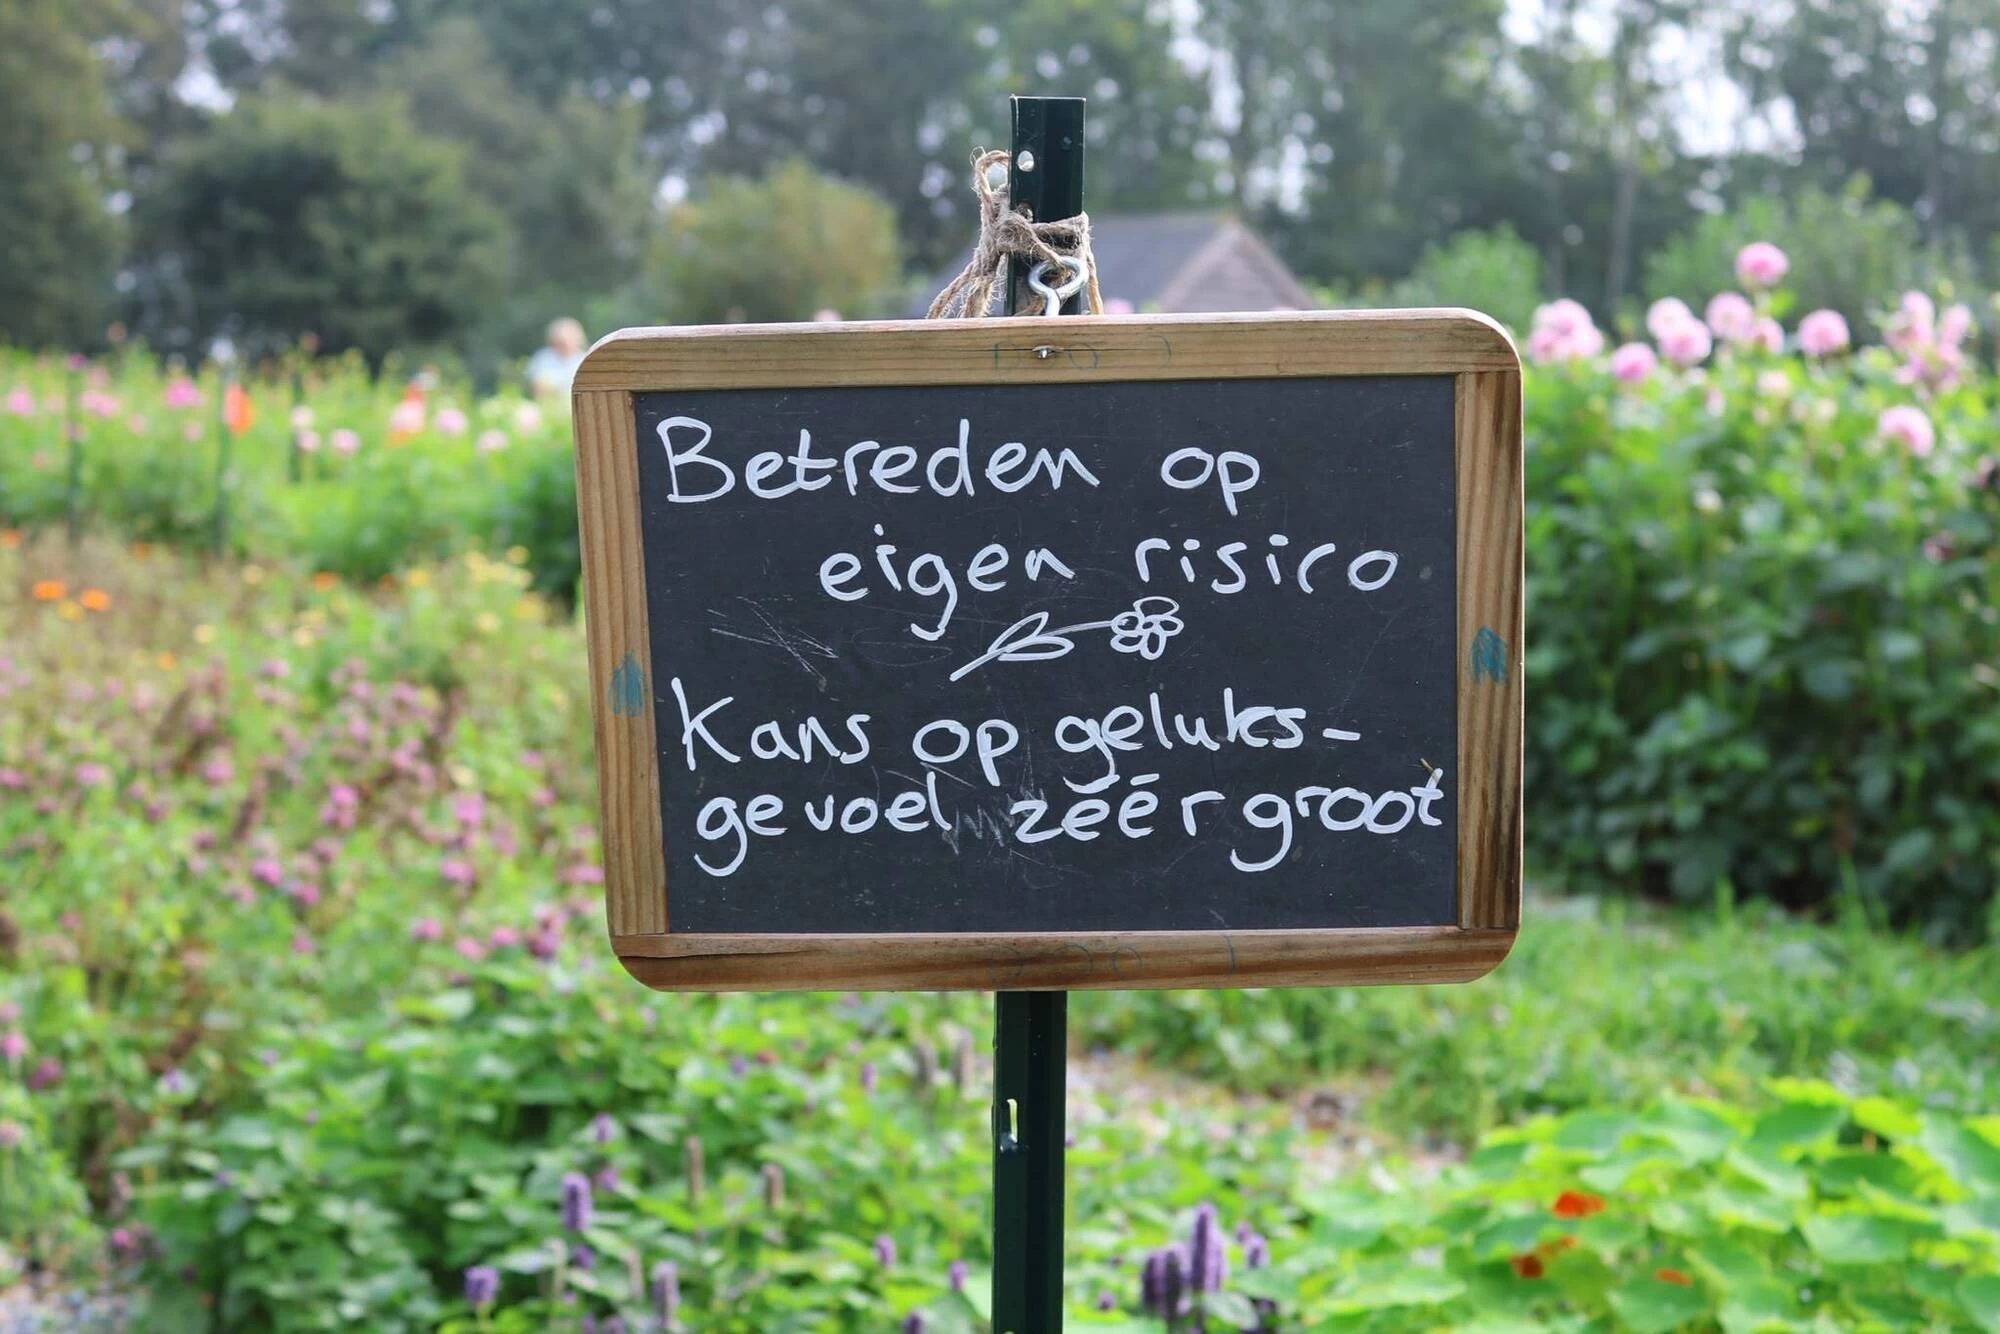 Betreden op
eigen risico
Kans op geluks-
gevoel zéér groot